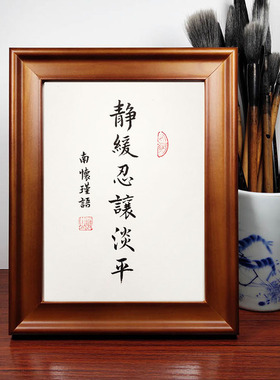 靜緩忍讓淡平
南懷瑾語